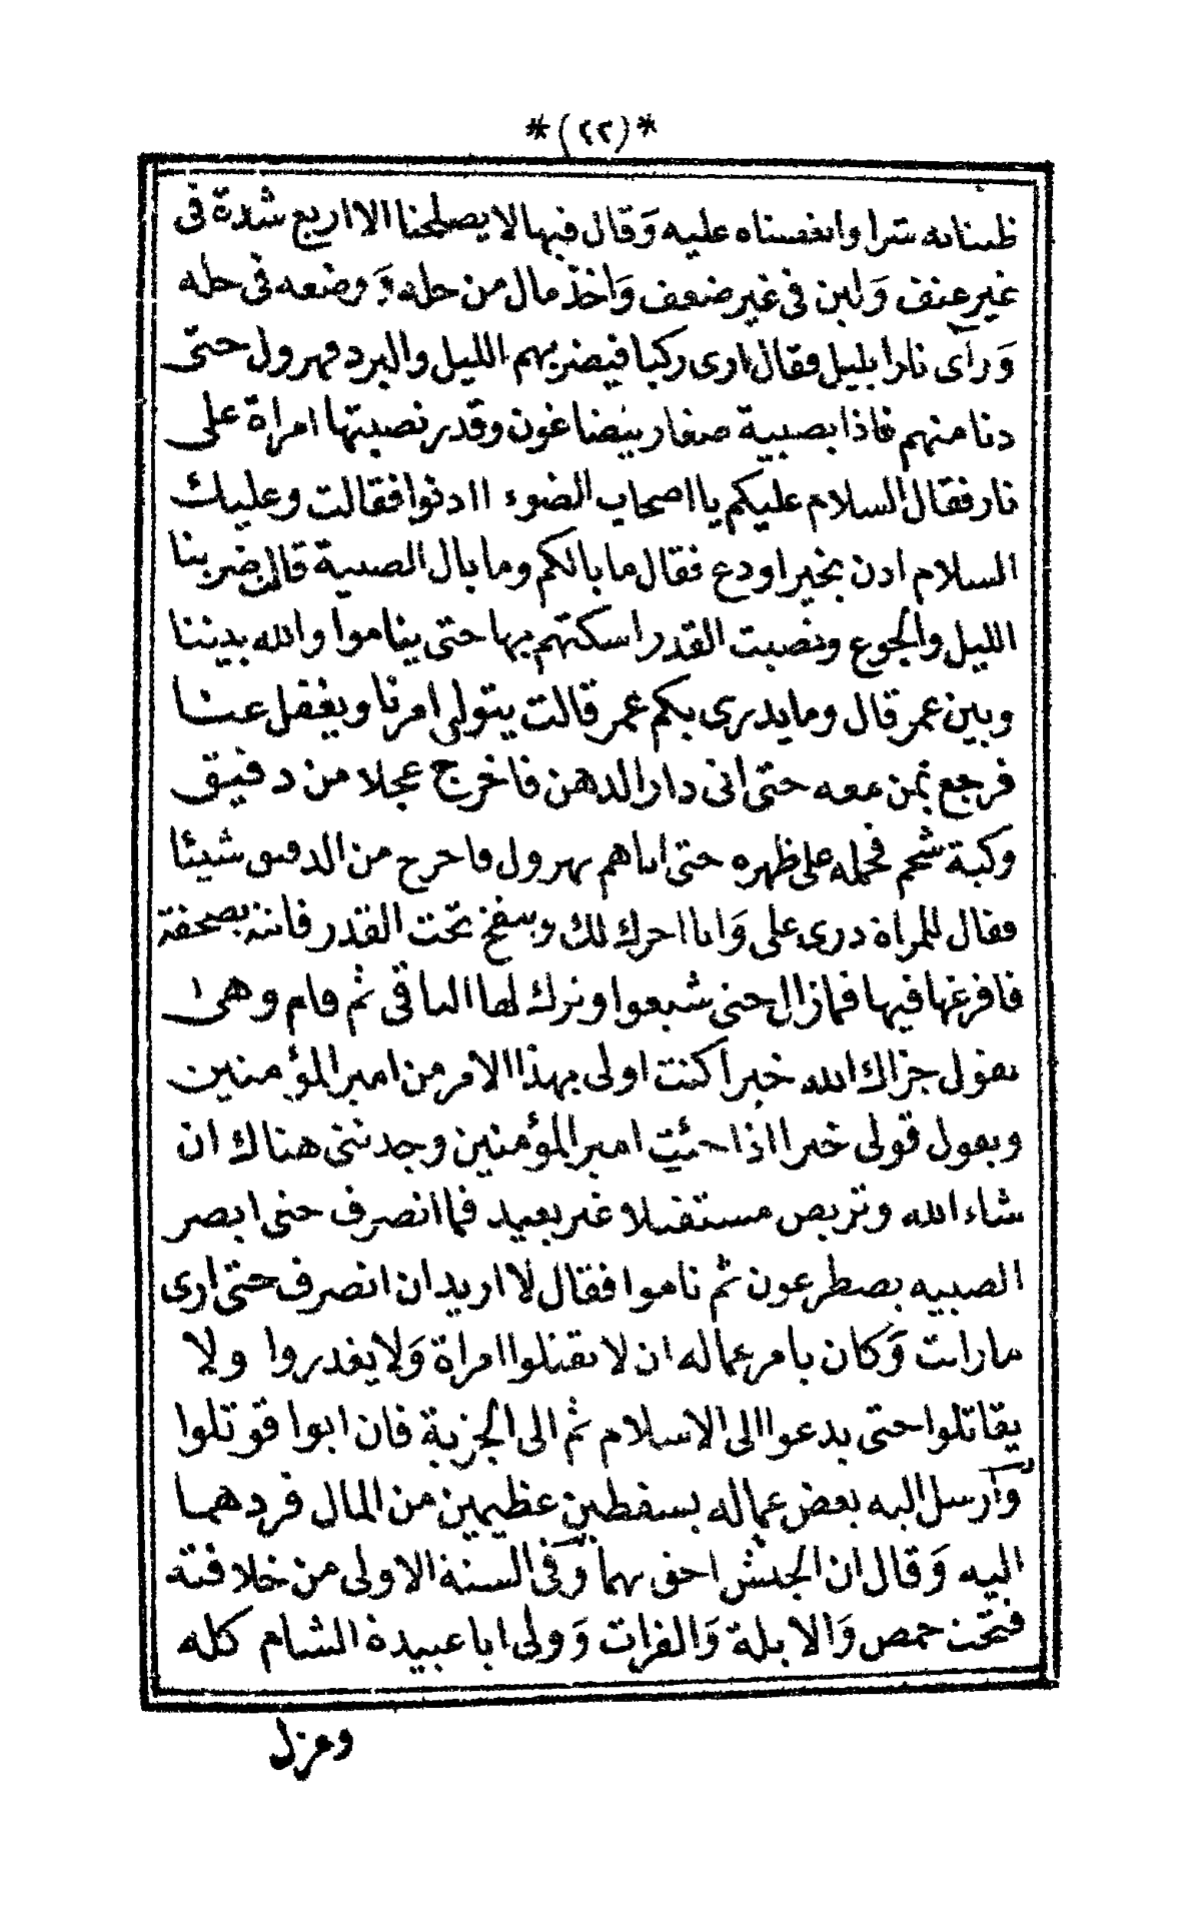 *(٢٢)*
ظننا به شرا وابغضناه عليه وَقال فيها لا يصلحنا الا اربع شدة فى
غير عنف وَلين فى غير ضعف وَاخذ مال من حله وَوضعه فى حله
وَرآى نارا بليل فقال ارى ركبا فيضر بهم الليل والبرد فهرول حتى
دنا منهم فاذا بصبية صغار يتضاغون وقدر نصبتها امراة على
نار فقال السلام عليكم يا اصحاب الضوء اادنوا فقالت وعليك
السلام ادن بخير او دع فقال ما بالكم وما بال الصبية قالت ضر بنا
الليل والجوع ونصبت القدر اسكتهم بها حتى يناموا والله بيننا
وبين عمر قال وما يدرى بكم عمر قالت يتولى امرنا ويغفل عنا
فرجع بمن معه حتى اتى دار الدهن فاخرج عجلا من دقيق
وكبة شحم فحمله على ظهره حتى اتاهم يهرول فاخرج من الدقيق شيئا
فقال للمراة درى على وَانا احرك لك وينفخ تحت القدر فاتته بصحفة
فافرغها فيها فمازال حتى شبعوا وترك لها الباقى ثم قام وهى
تقول جزاك الله خيرا كنت اولى بهذا الامر من امير المؤمنين
ويقول قولى خيرا اذا جئت امير المؤمنين وجدتنى هناك ان
شاء الله وتربص مستقبلا غير بعيد فما انصرف حتى ابصر
الصبيه يصطرعون ثم ناموا فقال لا اريد ان انصرف حتى ارى
ما رايت وَكان يامر عماله ان لا يقتلوا امراة وَلا يغدروا ولا
يقاتلوا حتى يدعوا الى الاسلام ثم الى الجزية فان ابوا قوتلوا
وَآرسل اليه بعض عماله بسفطين عظيمين من المال فردهما
اليه وَقال ان الجيش احق بهما وَفى السنة الاولى من خلافته
فتحت حمص وَالابلة وَالفرات وَولى ابا عبيدة الشام كله
وعزل